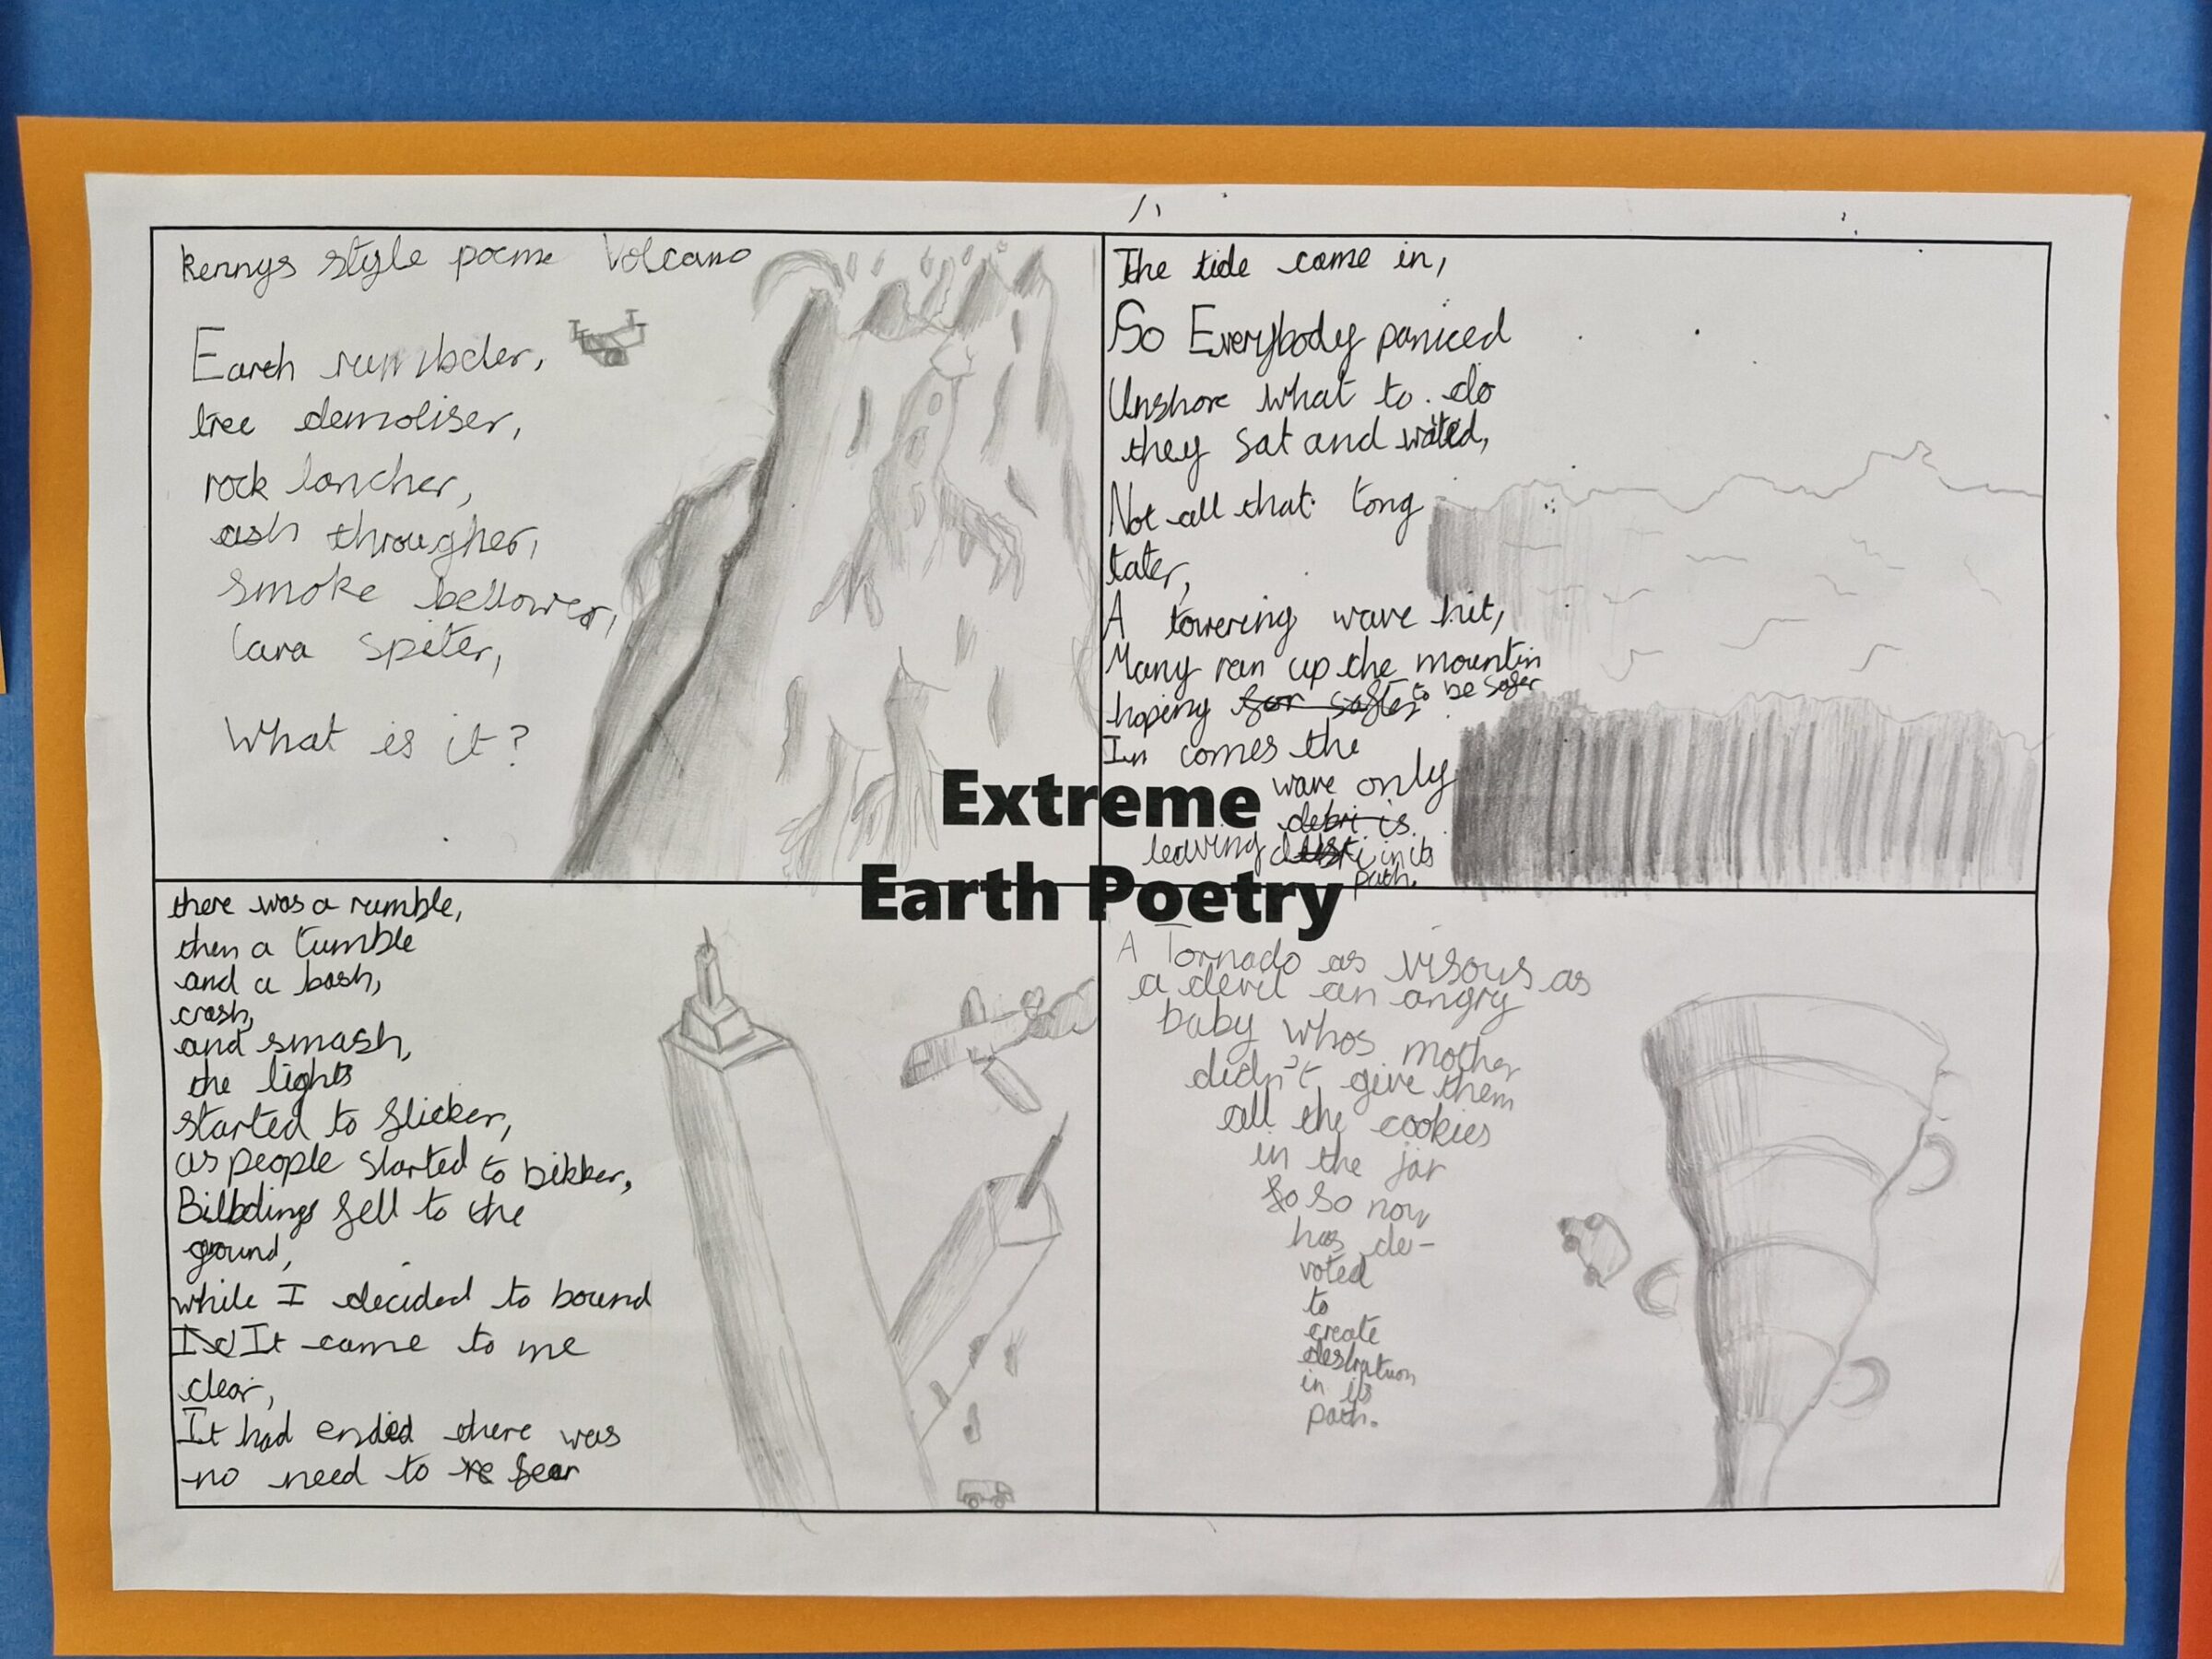 Kennys style poeme Volcano
Earth rumbeler,
tree demoliser,
rock lancher,
ash througher,
smoke bellower,
lava spiter,
What is it?
The tide came in,
So Everybody paniced
Unshore what to do
they sat and waited,
Not all that long
later,
A towering wave hit,
Many ran up the mountin
hoping for safter to be safer
In comes the
wave only
debri is
leaving in its
path.
Extreme
Earth Poetry
there was a rumble,
then a tumble
and a bash,
crash,
and smash,
the lights
started to flicker,
as people started to bikker,
Bilbdings fell to the
ground,
while I decided to bound
It came to me
clear,
It had ended there was
no need to fear
A Tornado as visous as
a devil an angry
baby whos mother
didn't give them
all the cookies
in the jar
so so now
has de-
voted
to
create
destrution
in its
path.